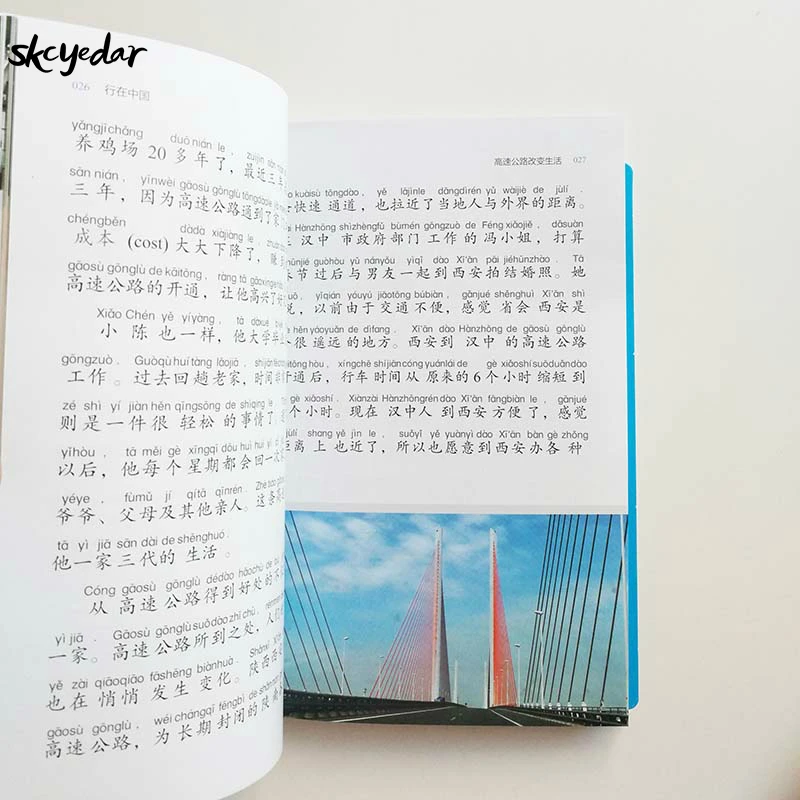 skcyedar
026 行在中国
yǎngjīchǎng duō nián le, zuìjìn sān nián
养鸡场 20 多年了，最近三年
sān nián, yīnwèi gāosù gōnglù tōngdàole jiā
三年，因为高速公路通到了家
chéngběn dàdà xiàjiàng le,
成本 (cost) 大大下降了，赚
gāosù gōnglù de kāitōng, ràng tā gāoxìng
高速公路的开通，让他高兴了
Xiǎo Chén yě yíyàng, tā dàxué bì
小陈也一样，他大学毕业
gōngzuò. Guòqù huí tàng lǎojiā, shíjiān
工作。过去回趟老家，时间
zé shì yí jiàn hěn qīngsōng de shìqing le.
则是一件很轻松的事情了。
yǐhòu, tā měi gè xīngqī dōu huì huí yí cì
以后，他每个星期都会回一次
yéye、fùmǔ jí qítā qīnrén. Zhè tiáo
爷爷、父母及其他亲人。这条
tā yì jiā sān dài de shēnghuó.
他一家三代的生活。
Cóng gāosù gōnglù dédào hǎochù de
从高速公路得到好处的不
yì jiā. Gāosù gōnglù suǒ dào zhī chù,
一家。高速公路所到之处，人们
yě zài qiāoqiāo fāshēng biànhuà. Shǎnxī
也在悄悄发生变化。陕西西
gāosù gōnglù, wéi chángqī fēngbì de
高速公路，为长期封闭的陕南
高速公路改变生活 027
kuàisù tōngdào, yě lājìnle dāngdìrén yǔ wàijiè de jùlí.
快速通道，也拉近了当地人与外界的距离。
Hànzhōng shìzhèngfǔ bùmén gōngzuò de Féng xiǎojiě, dǎsuàn
汉中市政府部门工作的冯小姐，打算
guòhòu yǔ nányǒu yìqǐ dào Xī'ān pāi jiéhūnzhào. Tā
节过后与男友一起到西安拍结婚照。她
yǐqián yóuyú jiāotōng búbiàn, gǎnjué shěnghuì Xī'ān shì
说，以前由于交通不便，感觉省会西安是
hěn yáoyuǎn de dìfang. Xī'ān dào Hànzhōng de gāosù gōnglù
个很遥远的地方。西安到汉中的高速公路
kāitōng hòu, xíngchē shíjiān cóng yuánlái de gè xiǎoshí suōduǎn dào
开通后，行车时间从原来的6个小时缩短到
gè xiǎoshí. Xiànzài Hànzhōngrén dào Xī'ān fāngbiàn le, gǎnjué
个小时。现在汉中人到西安方便了，感觉
jùlí shang yě jìn le, suǒyǐ yě yuànyì dào Xī'ān bàn gè zhǒng
距离上也近了，所以也愿意到西安办各种